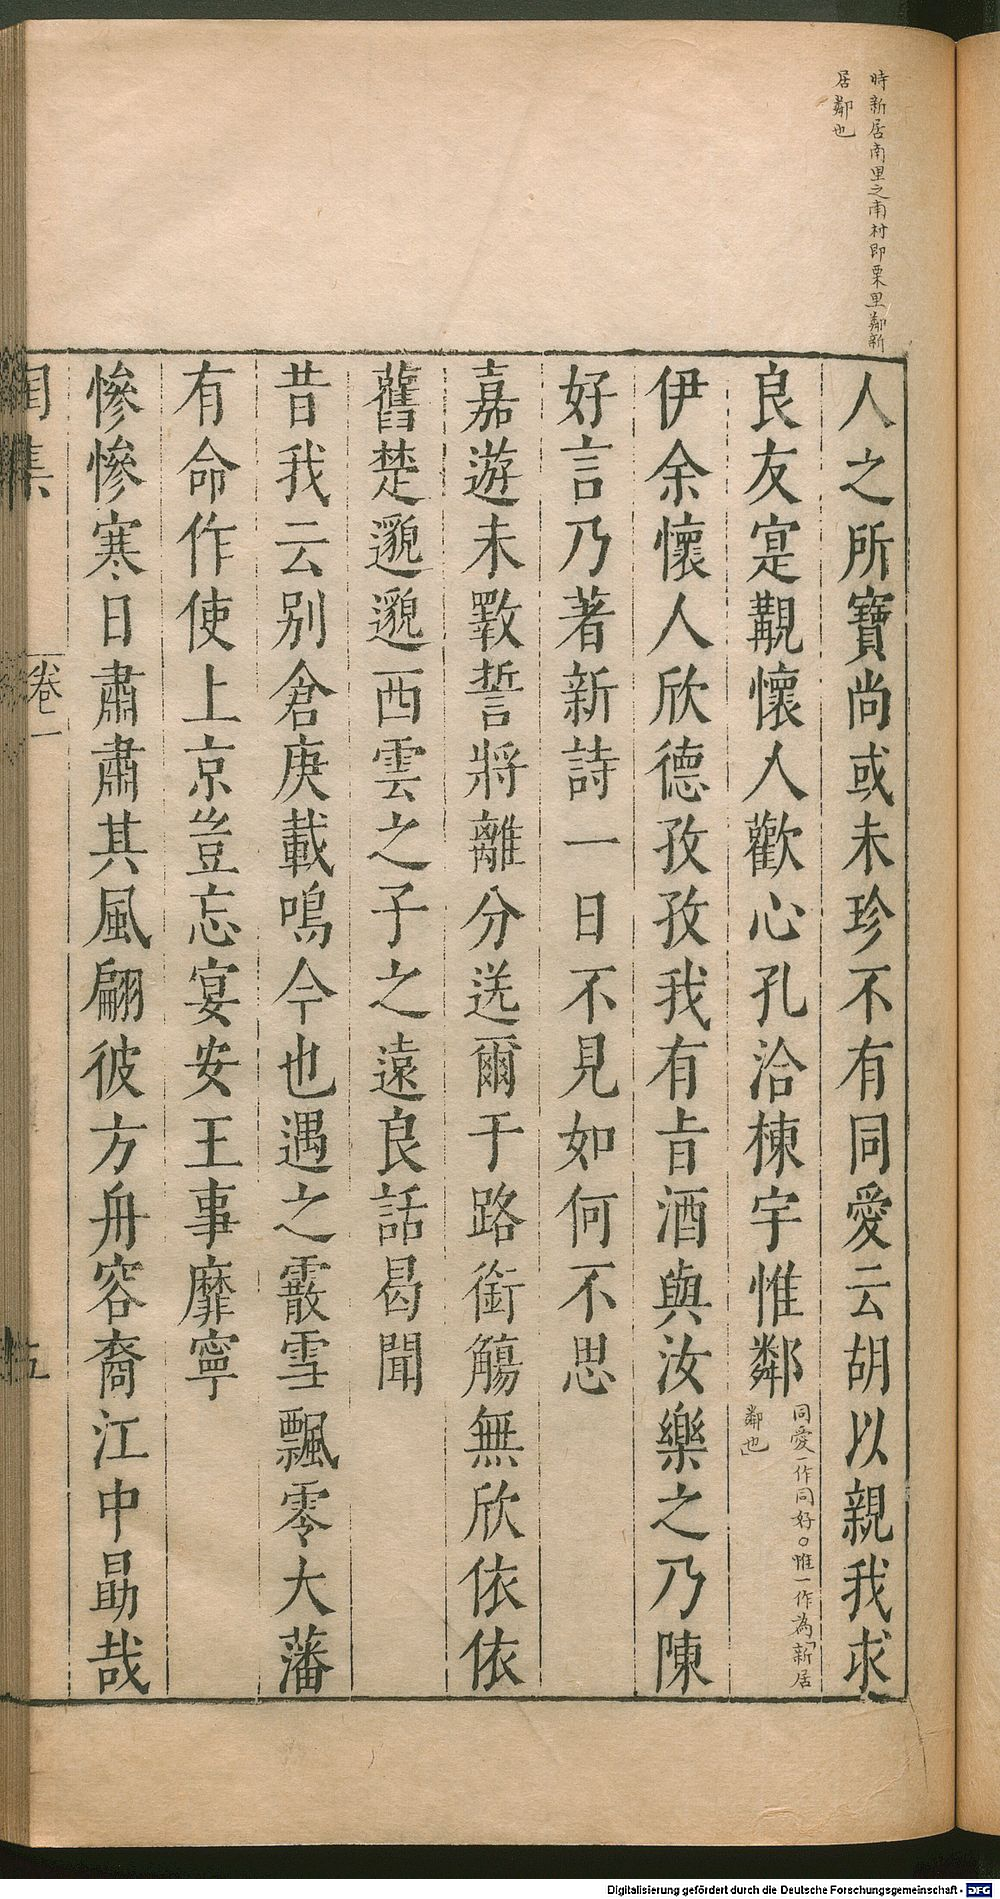 時新居南里之南村即栗里鄰新
居鄰也
人之所寶尚或未珍不有同愛云胡以親我求
良友寔覯懷人歡心孔洽棟宇惟鄰
同愛一作同好○惟一作為新居
鄰也
伊余懷人欣德孜孜我有旨酒與汝樂之乃陳
好言乃著新詩一日不見如何不思
嘉遊未斁誓將離分送爾于路銜觴無欣依依
舊楚邈邈西雲之子之遠良話曷聞
昔我云别倉庚載鳴今也遇之霰雪飄零大藩
有命作使上京豈忘宴安王事靡寧
慘慘寒日肅肅其風翩彼方舟容裔江中勗哉
卷一
五
Digitalisierung gefördert durch die Deutsche Forschungsgemeinschaft - DFG